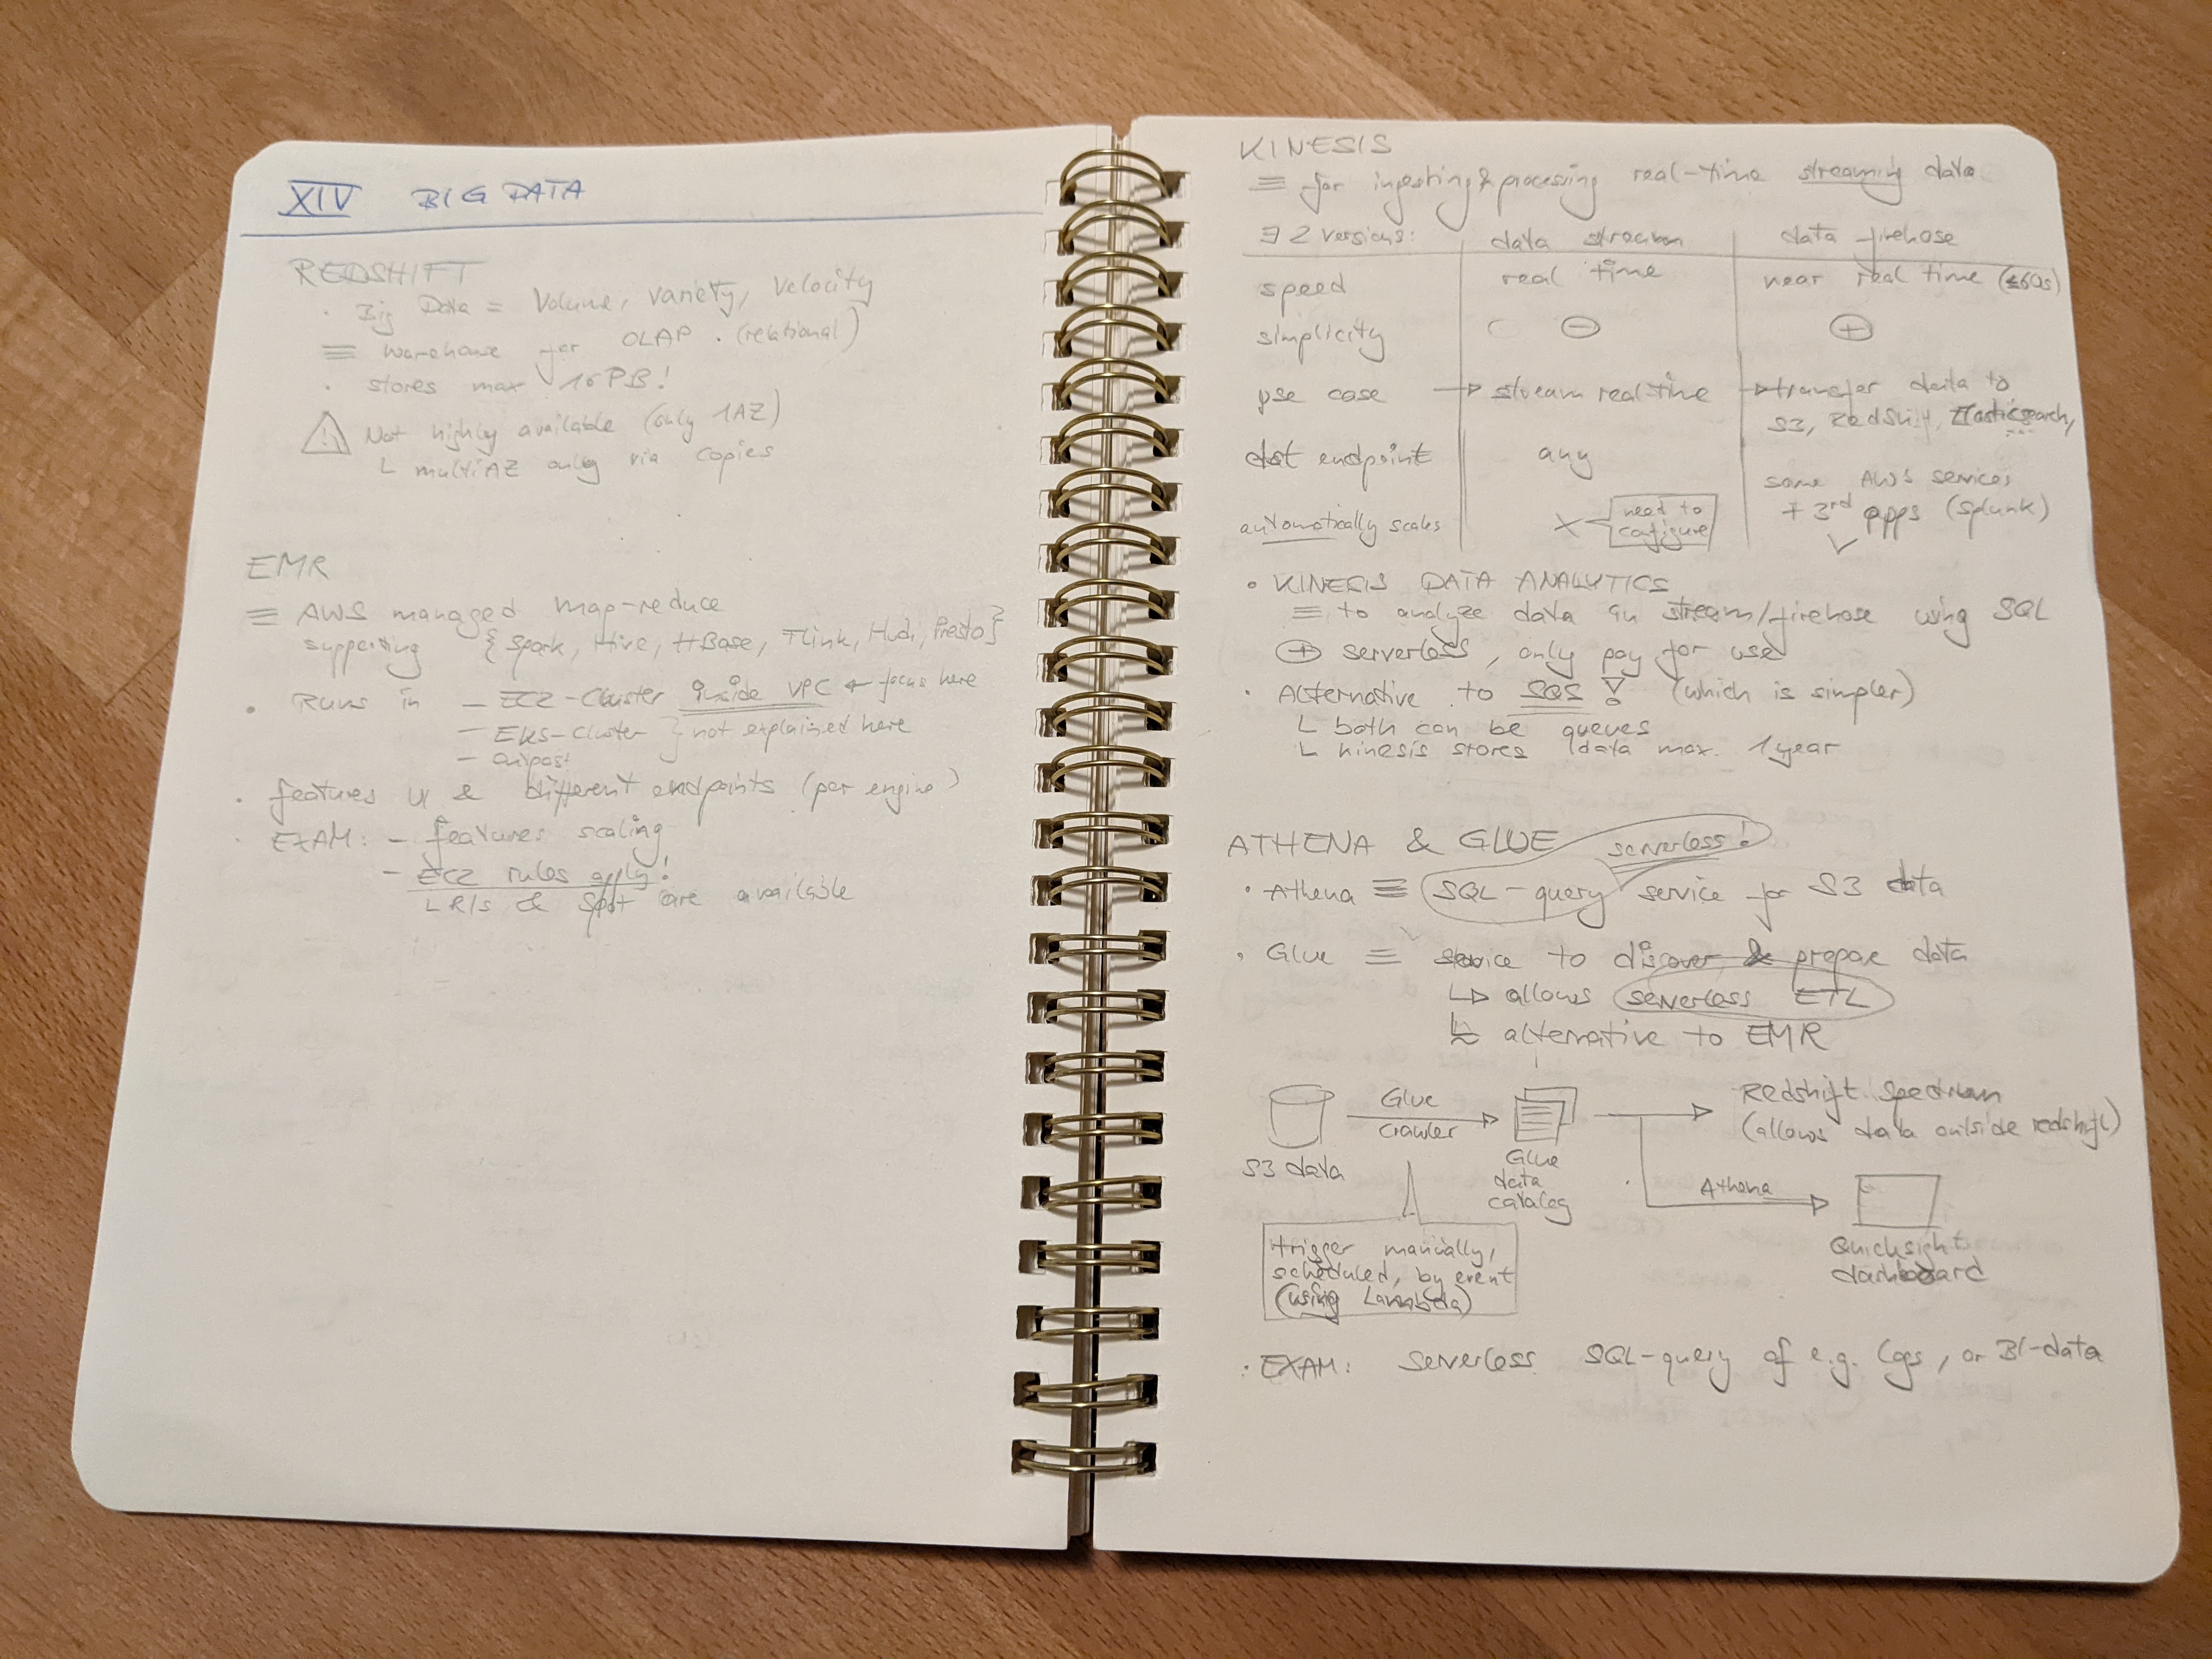 XIV BIG DATA
REDSHIFT
· Big Data = Volume, variety, velocity
≡ warehouse for OLAP. (relational)
· stores max 16PB!
! Not highly available (only 1AZ)
└ multiAZ only via copies
EMR
≡ AWS managed map-reduce
supporting {Spark, Hive, HBase, Flink, Hudi, Presto}
· Runs in – EC2-Cluster inside VPC ← focus here
– EKS-Cluster } not explained here
– outpost
· features UI & different endpoints (per engine)
· EXAM: – features scaling
– EC2 rules apply!
└ RIs & Spot are available
KINESIS
≡ for ingesting & processing real-time streaming data
∃ 2 versions: data stream data firehose
speed real time near real time (≤60s)
simplicity ⊖ ⊕
use case → stream real time → transfer data to
S3, Redshift, Elasticsearch, ...
dst endpoint any some AWS services
+ 3rd apps (Splunk)
automatically scales X need to configure ✓
· KINESIS DATA ANALYTICS
≡ to analyze data in stream/firehose using SQL
⊕ serverless, only pay for use
· Alternative to SQS ! (which is simpler)
└ both can be queues
└ kinesis stores data max. 1 year
ATHENA & GLUE serverless!
· Athena ≡ SQL-query service for S3 data
· Glue ≡ service to discover & prepare data
↳ allows serverless ETL
↳ alternative to EMR
S3 data
Glue
crawler
Glue
data
catalog
Redshift Spectrum
(allows data outside redshift)
Athena
Quicksight
dashboard
trigger manually,
scheduled, by event
(using Lambda)
· EXAM: Serverless SQL-query of e.g. logs, or BI-data